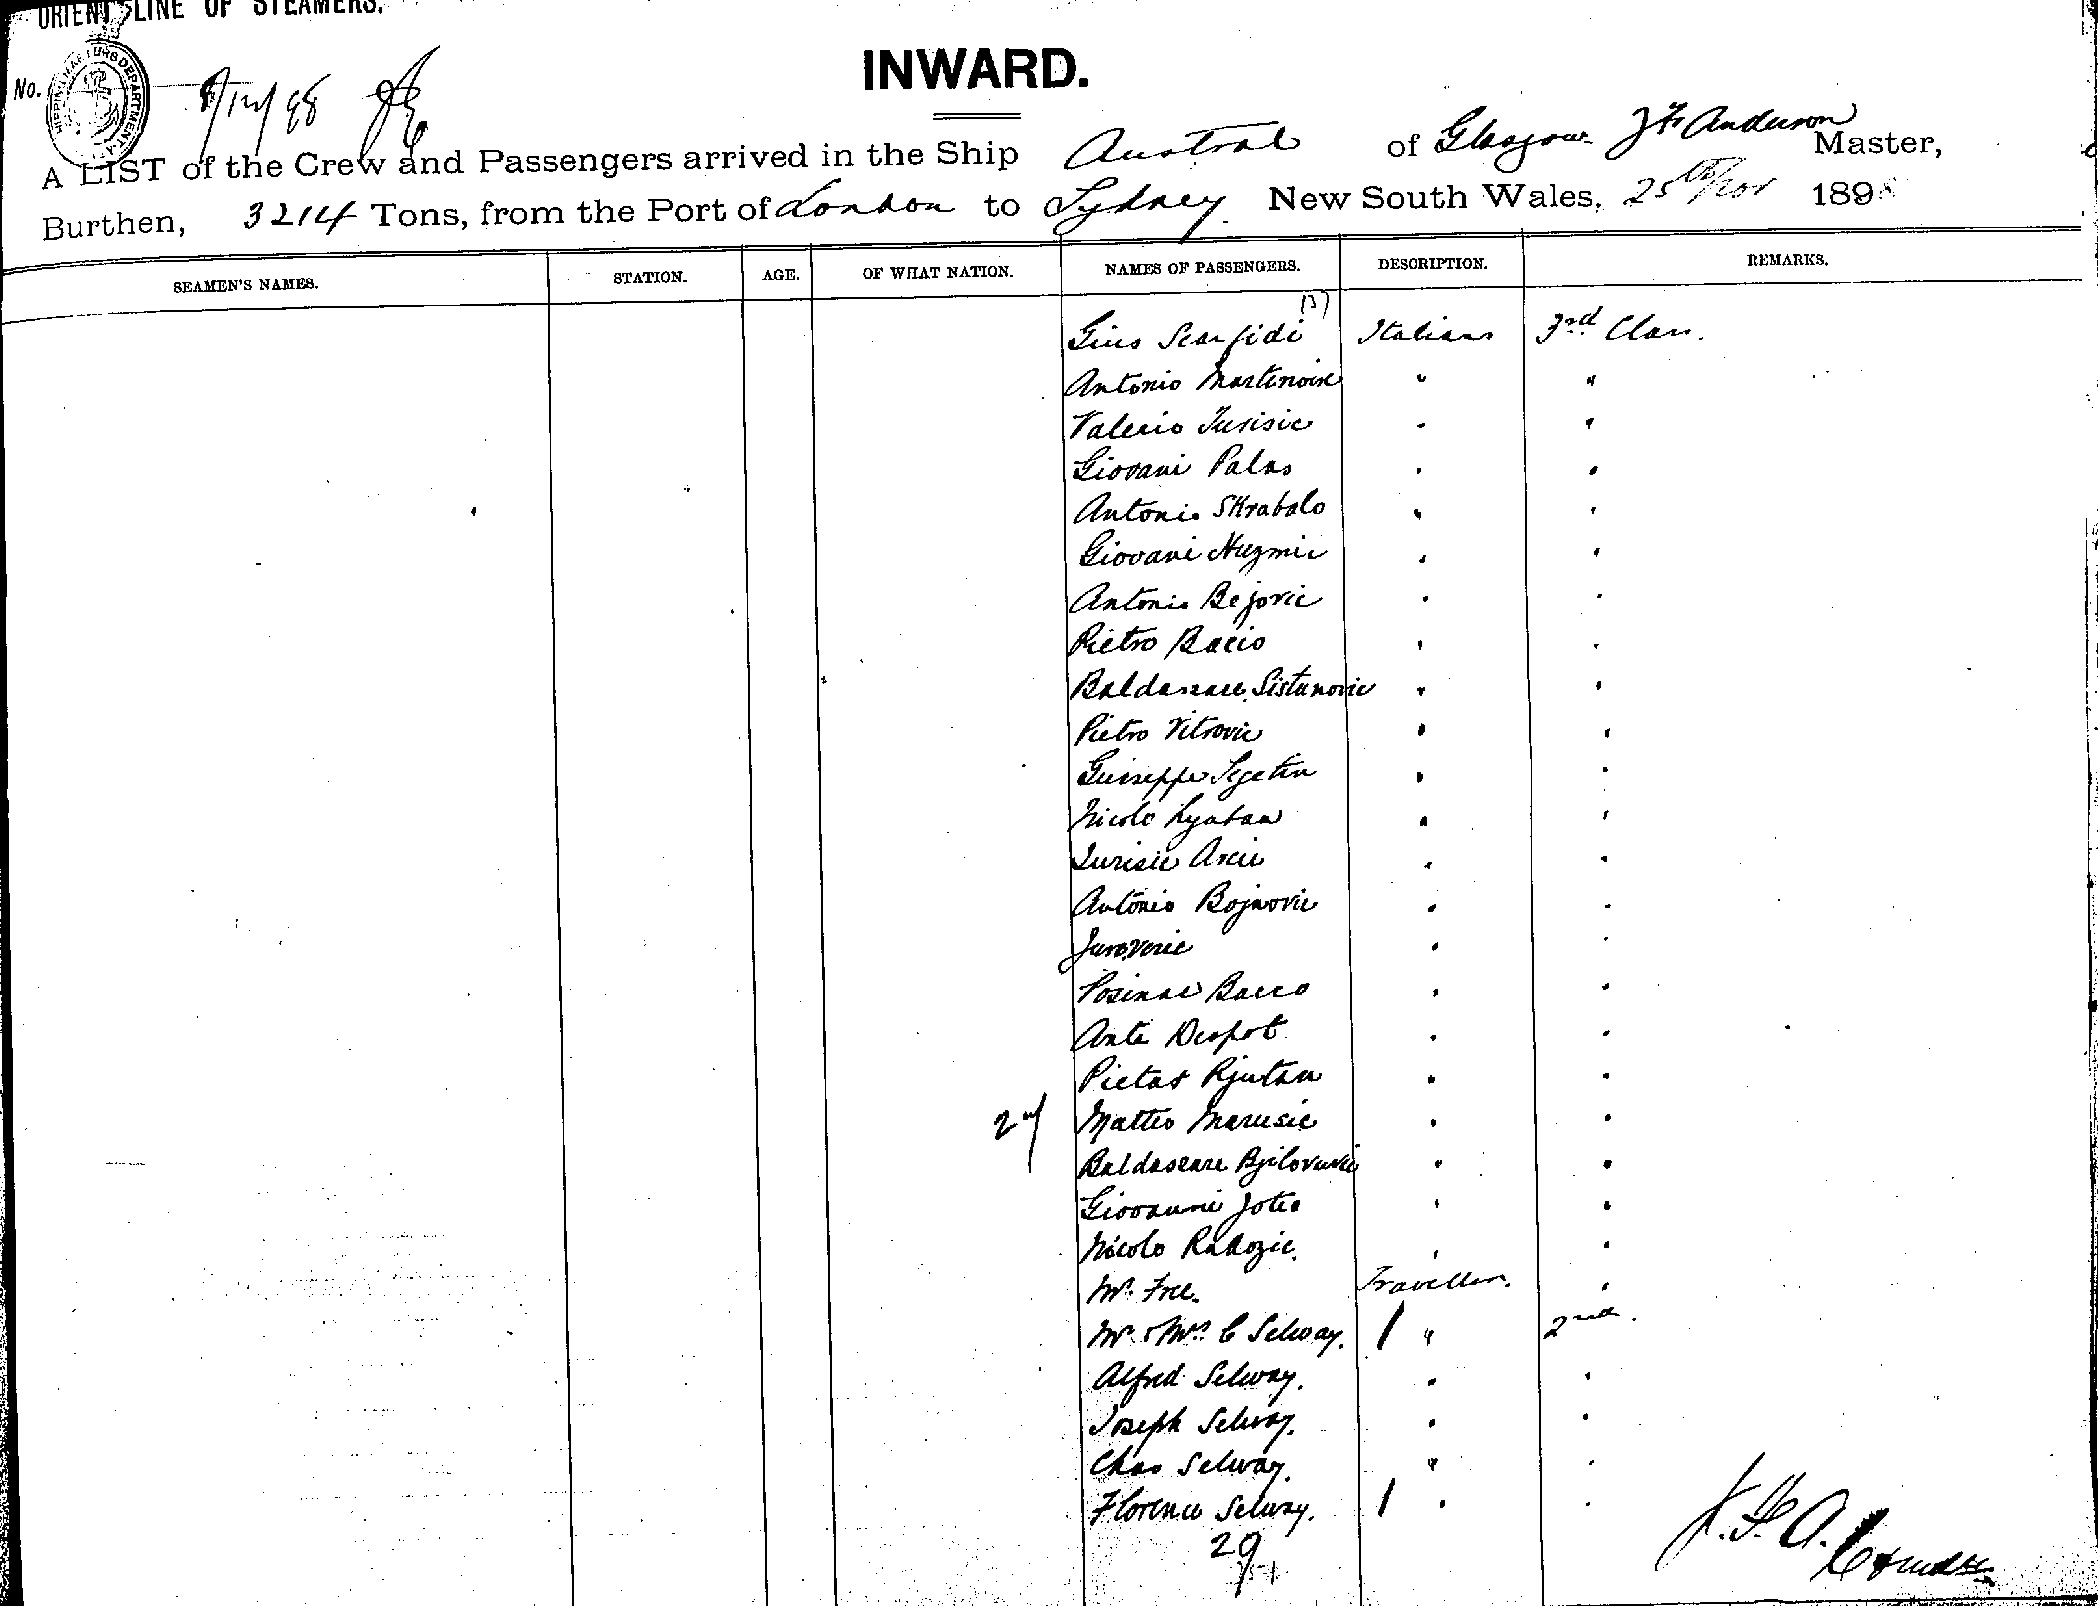 ORIENT LINE OF STEAMERS.
INWARD.
No.
A LIST of the Crew and Passengers arrived in the Ship Austral of Glasgow J F Anderson Master,
Burthen, 3214 Tons, from the Port of London to Sydney New South Wales, 25th Nov 1898
SEAMEN'S NAMES. STATION. AGE. OF WHAT NATION. NAMES OF PASSENGERS. DESCRIPTION. REMARKS.
Gius Scarfidi Italians 3rd Class.
Antonio " "
Valerio Turisic " "
Giovani Palas " "
Antonio Skrabalo " "
Giovani " "
Antonio Bejovic " "
Pietro Bacio " "
Baldassare Sistanovic " "
Pietro Vitrovic " "
Guiseppe Segetin " "
Nicolo " "
Jurisic " "
Antonio Bojnovic " "
" "
Bacco " "
Ante Despot " "
Rjutan " "
Matteo Marusic " "
Baldassare " "
Giovanni Jotic " "
Nicolo Radozic. " "
Mr. Free. Traveller. "
Mr. & Mrs. C Selway. 1 " 2nd.
Alfred Selway. " "
Joseph Selway. " "
Chas Selway. " "
Florence Selway. 1 " "
29